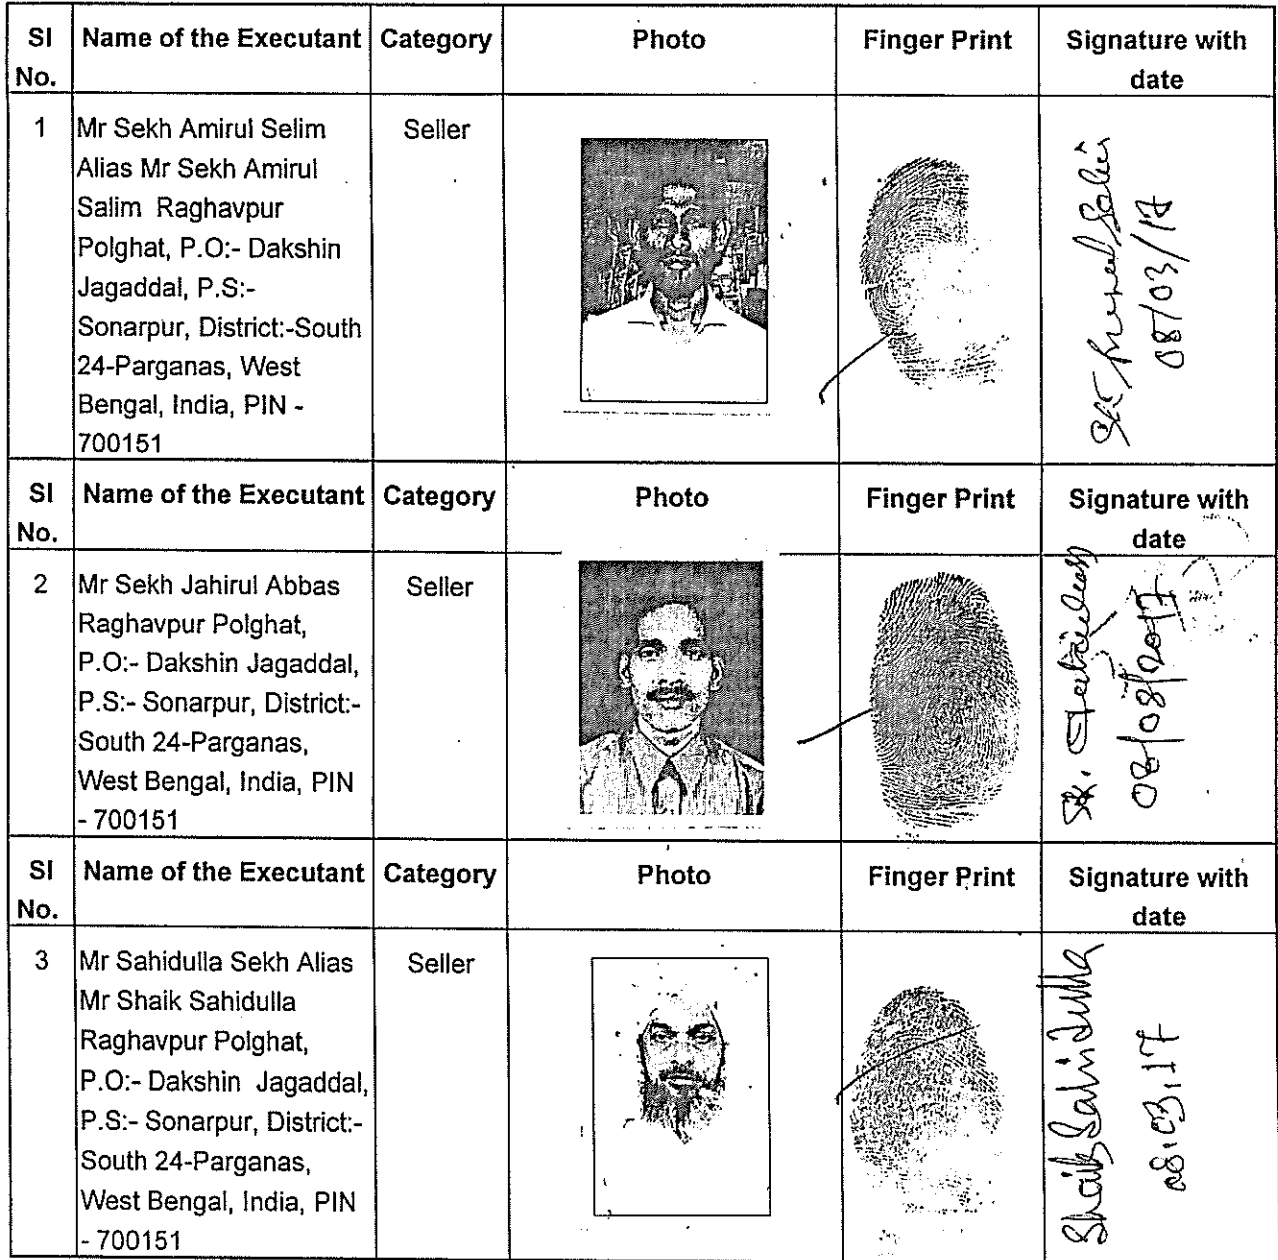 Sl No. Name of the Executant Category Photo Finger Print Signature with date
1 Mr Sekh Amirul Selim Seller
Alias Mr Sekh Amirul
Salim Raghavpur
Polghat, P.O:- Dakshin
Jagaddal, P.S:-
Sonarpur, District:-South
24-Parganas, West
Bengal, India, PIN -
700151
08/03/17
Sl No. Name of the Executant Category Photo Finger Print Signature with date
2 Mr Sekh Jahirul Abbas Seller
Raghavpur Polghat,
P.O:- Dakshin Jagaddal,
P.S:- Sonarpur, District:-
South 24-Parganas,
West Bengal, India, PIN
- 700151
Sk.
08/08/2017
Sl No. Name of the Executant Category Photo Finger Print Signature with date
3 Mr Sahidulla Sekh Alias Seller
Mr Shaik Sahidulla
Raghavpur Polghat,
P.O:- Dakshin Jagaddal,
P.S:- Sonarpur, District:-
South 24-Parganas,
West Bengal, India, PIN
- 700151
Shaik Sahidulla
08.03.17